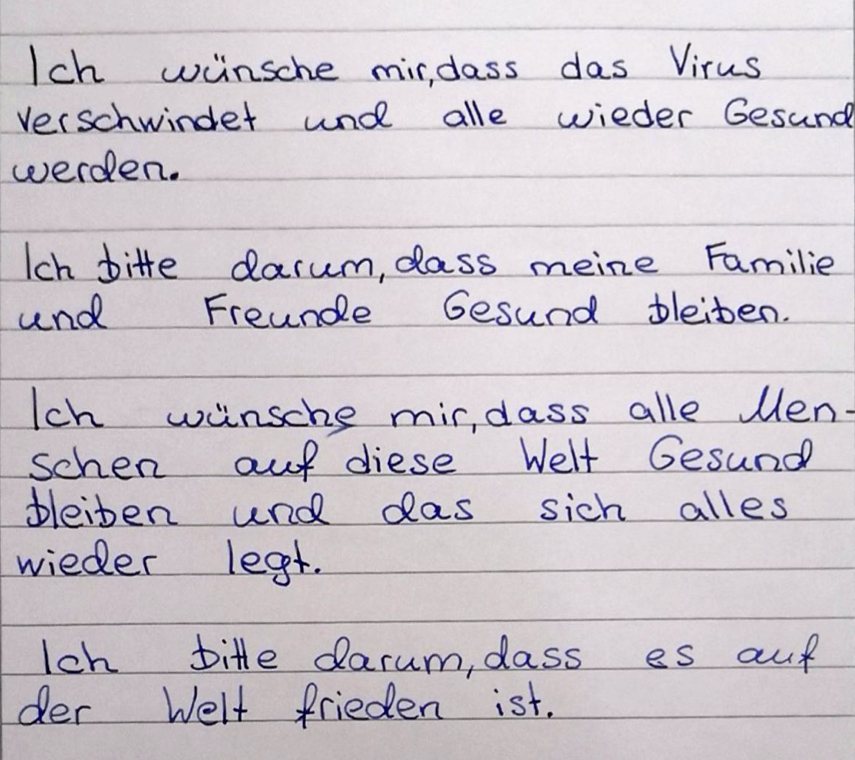 Ich wünsche mir,dass das Virus
verschwindet und alle wieder Gesund
werden.
Ich bitte darum,dass meine Familie
und Freunde Gesund bleiben.
Ich wünsche mir,dass alle Men-
schen auf diese Welt Gesund
bleiben und das sich alles
wieder legt.
Ich bitte darum,dass es auf
der Welt frieden ist.